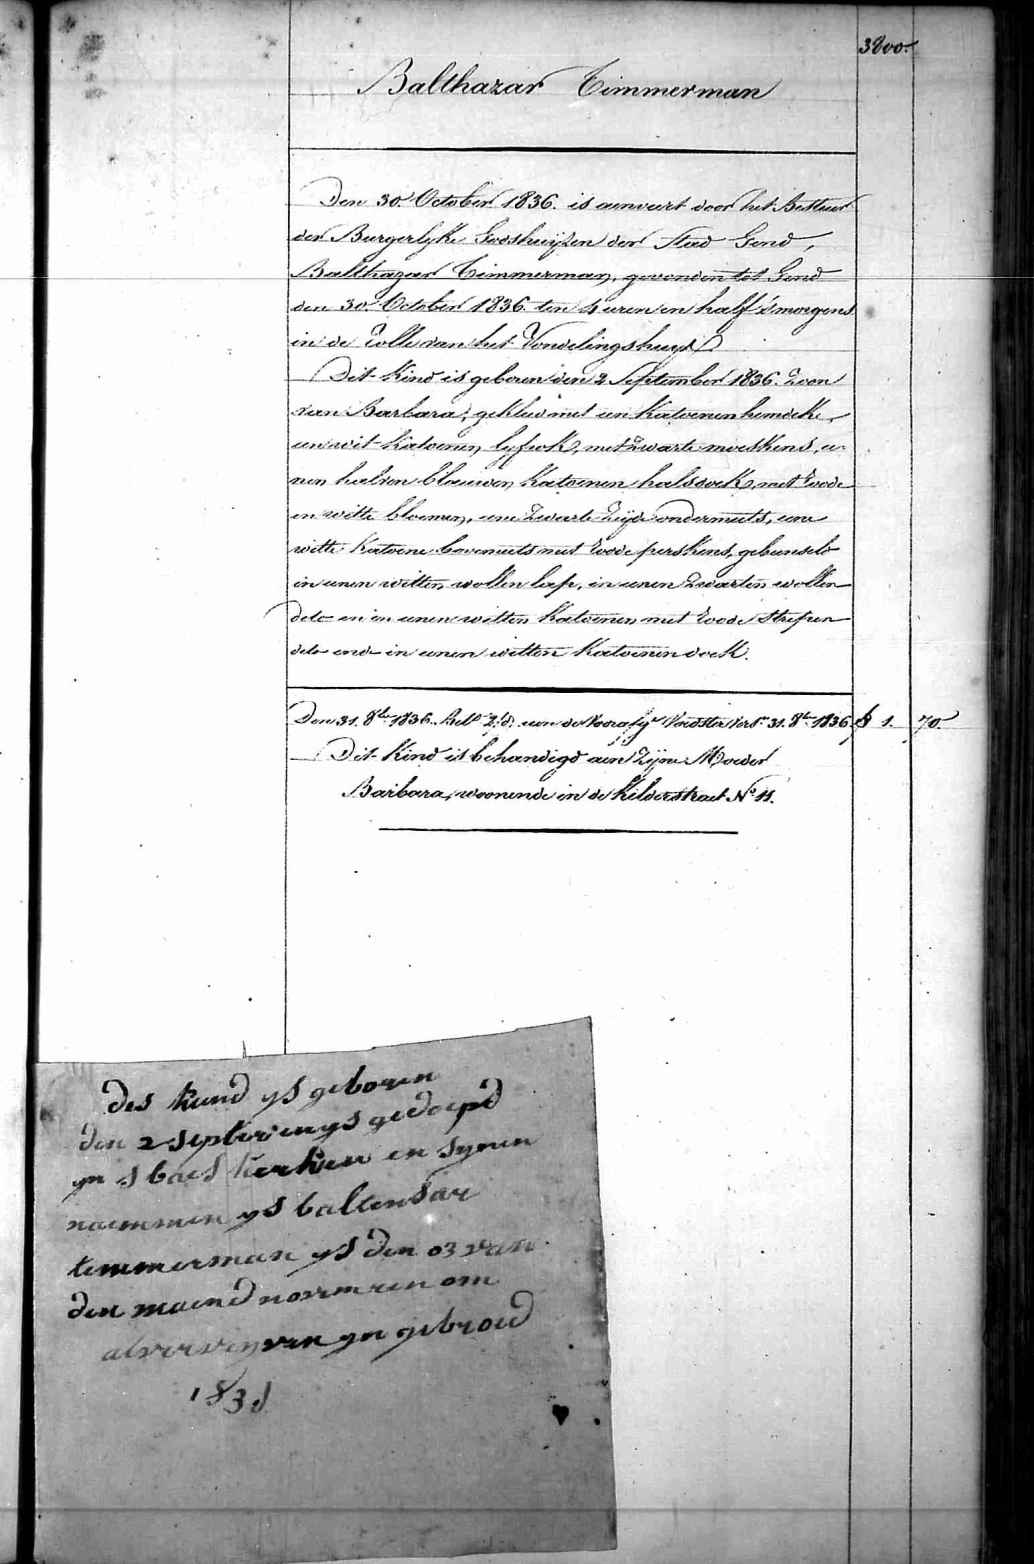 3800.
Balthazar Timmerman
Den 30 October 1836. is aenveert door het Bestuur
der Burgerlyke Godshuizen der Stad Gend,
Balthazar Timmerman, gevonden tot Gend
den 30 October 1836 ten 4 uren en half 's morgens
in de Rolle van het Vondelingshuys.
Dit Kind is geboren den 2 September 1836. Zoon
van Barbara; gekleed met een Katoenen hemdeke,
een wit katoenen lyfrok, met zwarte moeskens, ee-
nen halven blauwen Katoenen halsdoek, met roode
en witte bloemen, eene Zwarte Zyde ondermuts, eene
witte Katoene bovenmuts met roode perskens, gebunseld
in eenen witten wollen lap, in eenen Zwarten wollen
dito en in eenen witten Katoenen met roode strepen
dito ende in eenen witten Katoenen doek.
Den 31. 8br 1836. aen de 31. 8br 1836 1. 70.
Dit Kind is behandigd aen Zyne Moeder
Barbara, woonende in de Kelderstraet No 11.
des kend ys geboren
den 2 september en ys gedoept
yn s baes kerken en synen
naemmen ys baltensar
temmerman ys den 03 van
den maend novemren om
yn gebroed
183